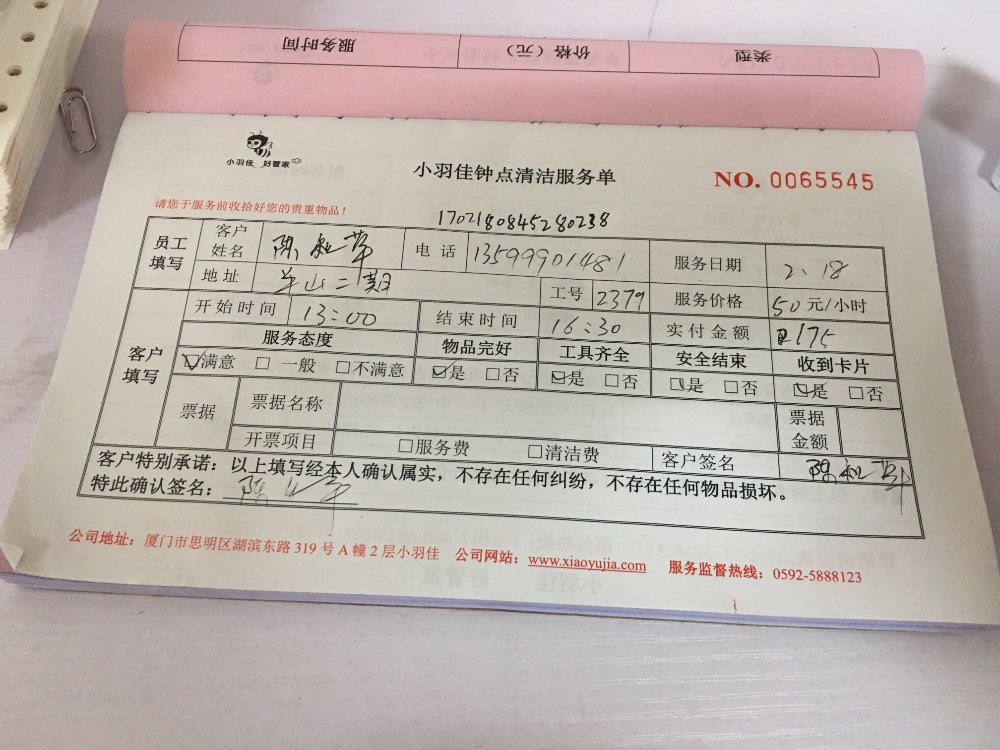 类型 价格（元） 服务时间
小羽佳 好管家
小羽佳钟点清洁服务单
NO. 0065545
请您于服务前收拾好您的贵重物品！
1702180845280238
员工填写 客户姓名 陈 电话 13599901481 服务日期 2.18
地址 半山二期 工号 2379 服务价格 50元/小时
客户填写 开始时间 13:00 结束时间 16:30 实付金额 175
服务态度 物品完好 工具齐全 安全结束 收到卡片
☑满意 □一般 □不满意 ☑是 □否 ☑是 □否 ☑是 □否 ☑是 □否
票据 票据名称 票据金额
开票项目 □服务费 □清洁费 客户签名 陈
客户特别承诺：以上填写经本人确认属实，不存在任何纠纷，不存在任何物品损坏。
特此确认签名：陈
公司地址：厦门市思明区湖滨东路 319 号 A 幢 2 层小羽佳 公司网站：www.xiaoyujia.com 服务监督热线：0592-5888123